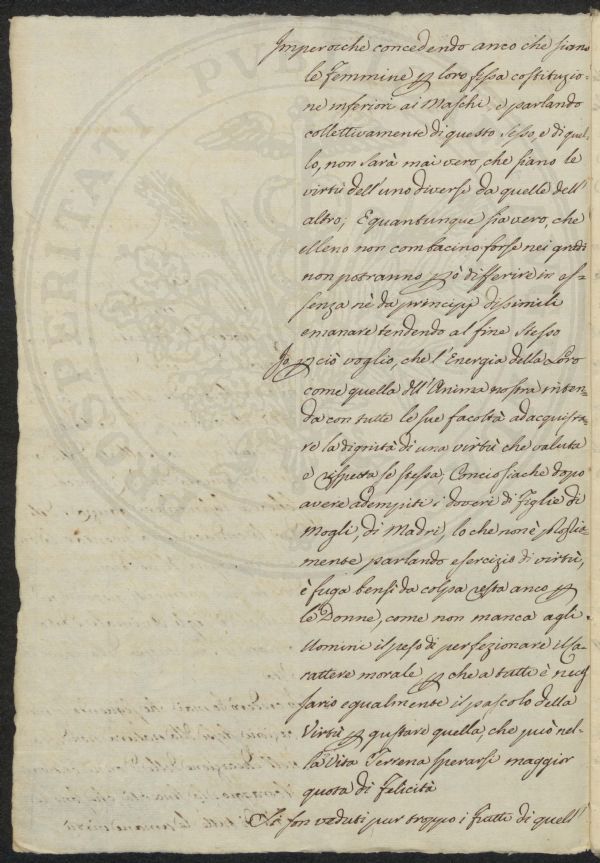 Imperocche concedendo anco che siano
le Femmine p loro fissa costituzio-
ne inferiori ai Maschi, e parlando
collettivamente di questo sesso, e di quel-
lo, non sarà mai vero, che siano le
virtù dell'uno diverse da quelle dell'
altro; E quantunque sia vero, che
elleno non combacino forse nei gradi
non potranno pò differire in es-
senza nè da principj dissimili
emanare tendendo al fine stesso
Io p ciò voglio, che l'Energia della Loro
come quella dell'Anima nostra inten-
da con tutte le sue facoltà ad acquista-
re la dignità di una virtù che valuta
e rispetta se stessa; Conciosiache dopo
avere adempiti i doveri di Figlie di
Mogli, di Madri, lo che non è
mente parlando esercizio di virtù,
è fuga bensì da colpa resta anco p
le Donne, come non manca agli
Uomini il peso di perfezionare il Ca-
rattere morale p che a tutti è neces
sario egualmente il pascolo della
Virtù p gustare quella, che può nel-
la Vita Terrena sperarsi maggior
quota di Felicità
Si son veduti pur troppo i Frutti di quell'
PROSPERITATI PUBLI